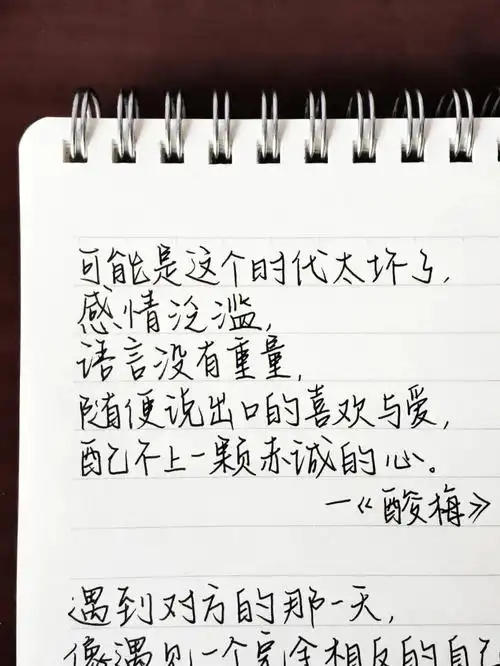 可能是这个时代太坏了，
感情泛滥，
语言没有重量，
随便说出口的喜欢与爱，
配不上一颗赤诚的心。
—《酸梅》
遇到对方的那一天，
像遇见一个完全相反的自己